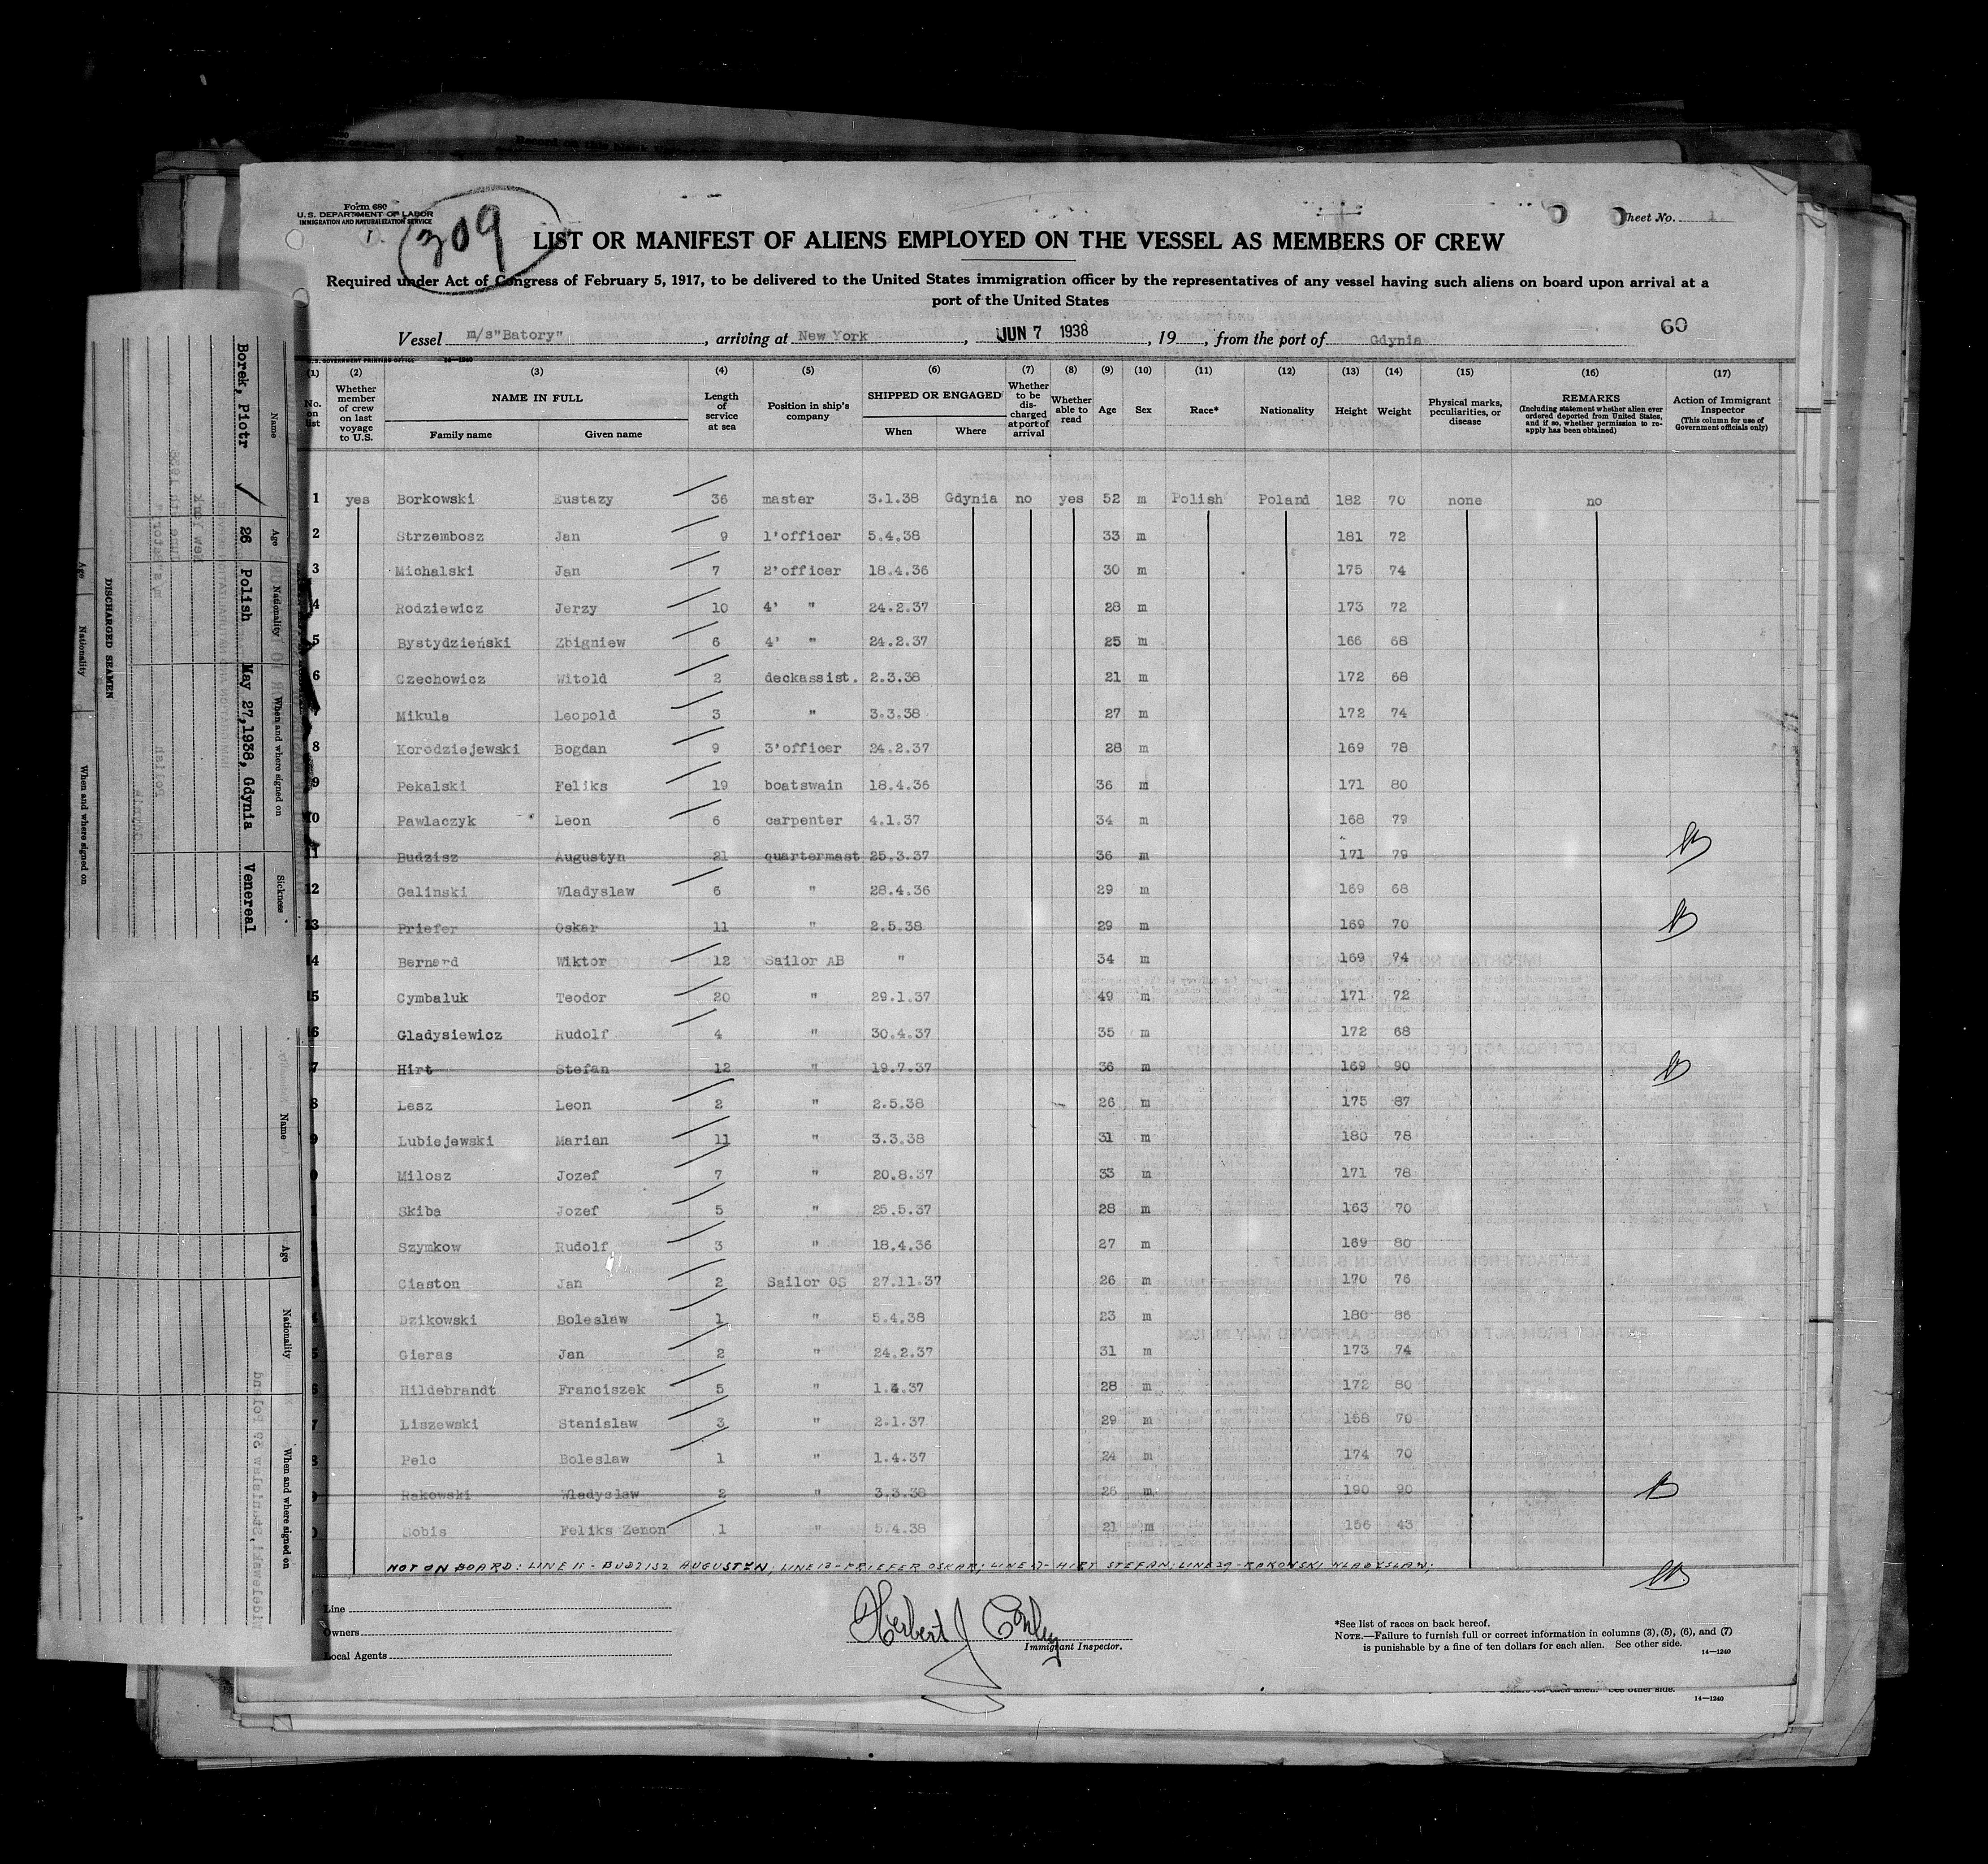 Form 680
U.S. DEPARTMENT OF LABOR
IMMIGRATION AND NATURALIZATION SERVICE
309
Sheet No. 1
LIST OR MANIFEST OF ALIENS EMPLOYED ON THE VESSEL AS MEMBERS OF CREW
Required under Act of Congress of February 5, 1917, to be delivered to the United States immigration officer by the representatives of any vessel having such aliens on board upon arrival at a
port of the United States
Vessel m/s"Batory", arriving at New York, JUN 7 1938, 19, from the port of Gdynia 60
(1) (2) (3) (4) (5) (6) (7) (8) (9) (10) (11) (12) (13) (14) (15) (16) (17)
No. on list Whether member of crew on last voyage to U.S. NAME IN FULL Family name Given name Length of service at sea Position in ship's company SHIPPED OR ENGAGED When Where Whether to be discharged at port of arrival Whether able to read Age Sex Race* Nationality Height Weight Physical marks, peculiarities, or disease REMARKS (Including statement whether alien ever ordered deported from United States, and if so, whether permission to reapply has been obtained) Action of Immigrant Inspector (This column for use of Government officials only)
1 yes Borkowski Eustazy 36 master 3.1.38 Gdynia no yes 52 m Polish Poland 182 70 none no
2 Strzembosz Jan 9 1'officer 5.4.38 33 m 181 72
3 Michalski Jan 7 2'officer 18.4.36 30 m 175 74
4 Rodziewicz Jerzy 10 4' " 24.2.37 28 m 173 72
5 Bystydzieński Zbigniew 6 4' " 24.2.37 25 m 166 68
6 Czechowicz Witold 2 deckassist. 2.3.38 21 m 172 68
Mikula Leopold 3 " 3.3.38 27 m 172 74
8 Korodziejewski Bogdan 9 3'officer 24.2.37 28 m 169 78
9 Pekalski Feliks 19 boatswain 18.4.36 36 m 171 80
10 Pawlaczyk Leon 6 carpenter 4.1.37 34 m 168 79
11 Budzisz Augustyn 21 quartermast 25.3.37 36 m 171 79
12 Galinski Wladyslaw 6 " 28.4.36 29 m 169 68
13 Priefer Oskar 11 " 2.5.38 29 m 169 70
14 Bernard Wiktor 12 Sailor AB " 34 m 169 74
15 Cymbaluk Teodor 20 " 29.1.37 49 m 171 72
6 Gladysiewicz Rudolf 4 " 30.4.37 35 m 172 68
7 Hirt Stefan 12 " 19.7.37 36 m 169 90
8 Lesz Leon 2 " 2.5.38 26 m 175 87
9 Lubiejewski Marian 11 " 3.3.38 31 m 180 78
0 Milosz Jozef 7 " 20.8.37 33 m 171 78
1 Skiba Jozef 5 " 25.5.37 28 m 163 70
Szymkow Rudolf 3 " 18.4.36 27 m 169 80
Ciaston Jan 2 Sailor OS 27.11.37 26 m 170 76
4 Dzikowski Boleslaw 1 " 5.4.38 23 m 180 86
5 Gieras Jan 2 " 24.2.37 31 m 173 74
6 Hildebrandt Franciszek 5 " 1.4.37 28 m 172 80
7 Liszewski Stanislaw 3 " 2.1.37 29 m 158 70
8 Pelc Boleslaw 1 " 1.4.37 24 m 174 70
9 Rakowski Wladyslaw 2 " 3.3.38 26 m 190 90
0 Sobis Feliks Zenon 1 " 5.4.38 21 m 156 43
NOT ON BOARD: LINE 11 - BUDZISZ AUGUSTYN; LINE 13 - PRIEFER OSKAR; LINE 17 - HIRT STEFAN; LINE 29 - RAKOWSKI WLADYSLAW;
Line
Owners
Local Agents
Herbert J Conley
Immigrant Inspector.
*See list of races on back hereof.
NOTE.—Failure to furnish full or correct information in columns (3), (5), (6), and (7)
is punishable by a fine of ten dollars for each alien. See other side.
14—1240
14—1240
Name Age Nationality When and where signed on Sickness
Borek, Piotr 26 Polish May 27,1938, Gdynia Venereal
DISCHARGED SEAMEN
Age Nationality When and where signed on
Name Age Nationality When and where signed on